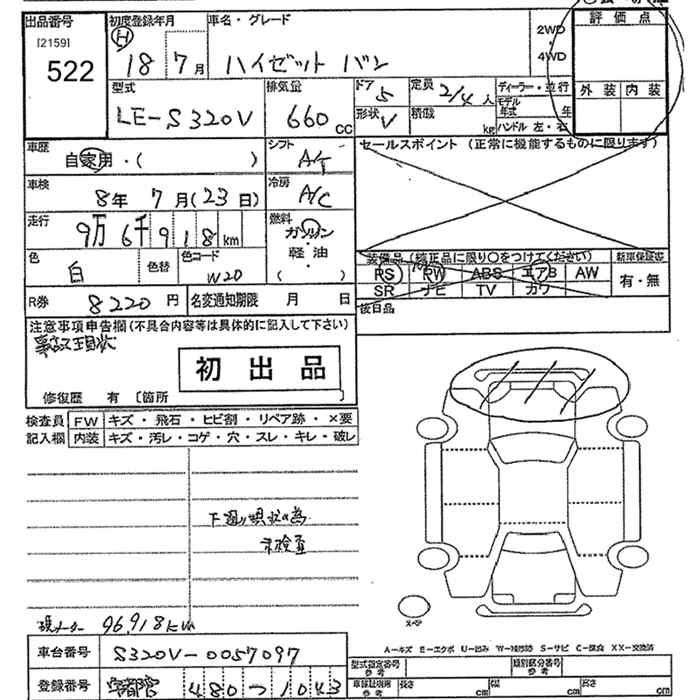 出品番号 初度登録年月 車名・グレード
[2159] 522
H 18 7月 ハイゼット バン
2WD・4WD
評価点
外装 内装
型式 LE-S320V
排気量 660 cc
ドア 5
形状 V
定員 2/4 人
積載 kg
ディーラー・並行
モデル年式 年
ハンドル 左・右
車歴 自家用・( )
シフト A/T
セールスポイント(正常に機能するものに限ります)
車検 8年 7月(23日)
冷房 A/C
走行 9万 6千 9 1 8 km
燃料 ガソリン・軽油・( )
色 白 色替 色コード W20
装備品(純正品に限り○をつけてください)
PS PW ABS エアB AW
SR ナビ TV カワ
新車保証書 有・無
R券 8220円 名変通知期限 月 日
後日品
注意事項申告欄(不具合内容等は具体的に記入して下さい)
初出品
修復歴 有 [箇所 ]
検査員記入欄
FW キズ・飛石・ヒビ割・リペア跡・×要
内装 キズ・汚レ・コゲ・穴・スレ・キレ・破レ
下廻り現状の為
未検査
現メーター 96,918km
スペア
A-キズ E-エクボ U-凹み W-補修跡 S-サビ C-腐食 XX-交換済
車台番号 S320V-0057097
型式指定番号 参考
類別区分番号 参考
登録番号 480 つ 1043
車庫証明用 参考 長さ cm 幅 cm 高さ cm